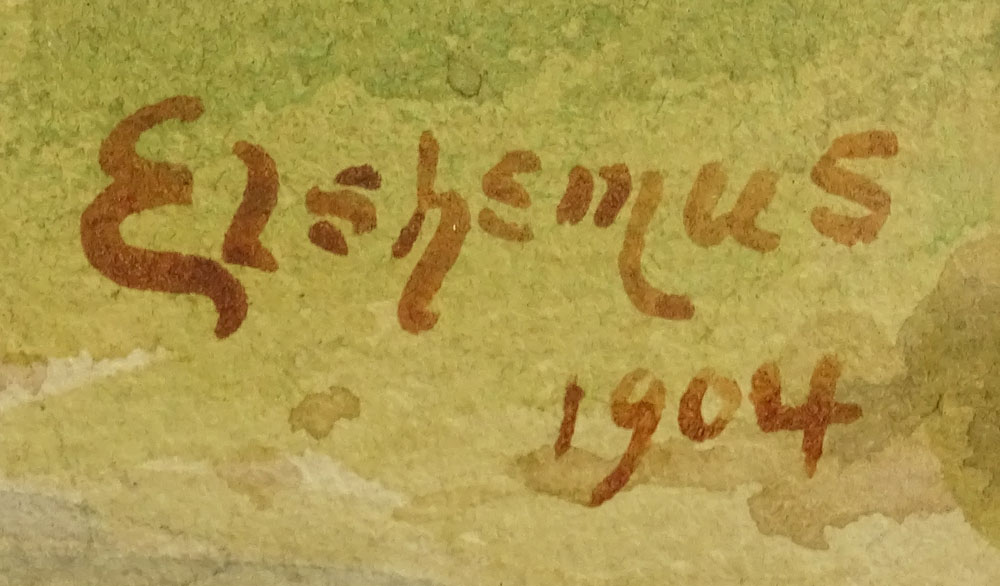 Elshemus
1904